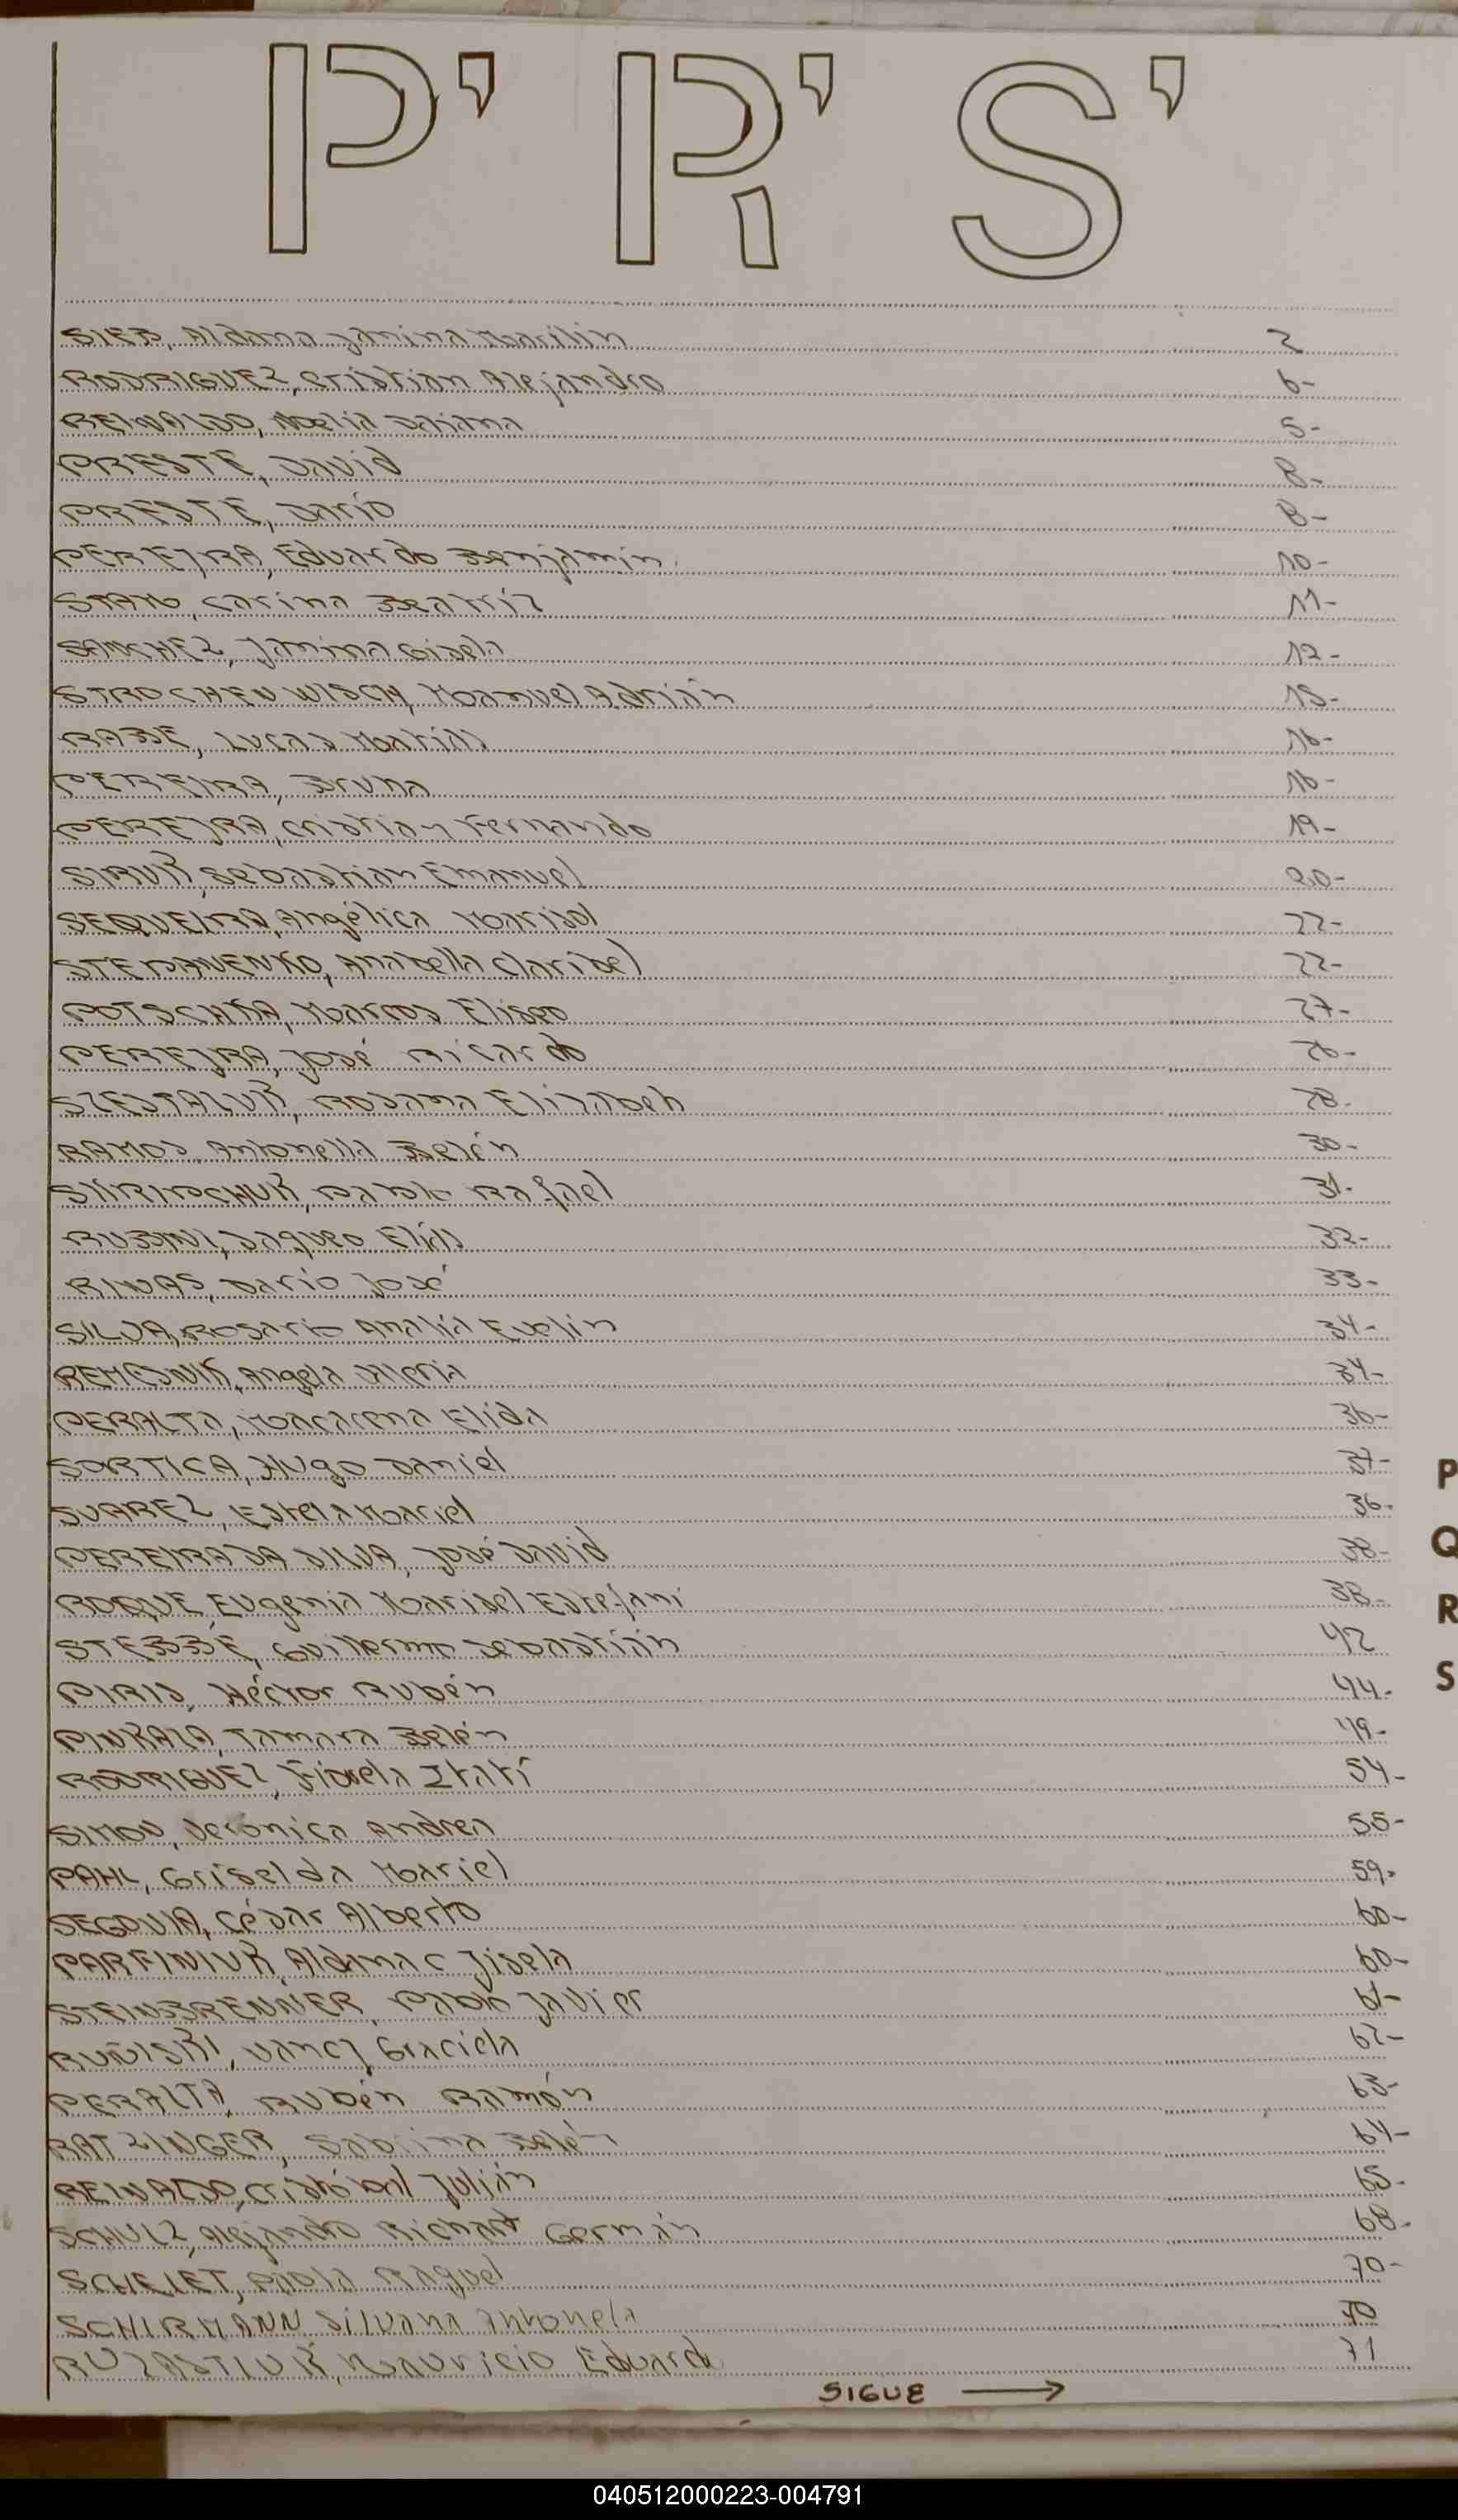 P' R' S'
SIEB, Aldana Janina Marilin 2
RODRIGUEZ, Cristian Alejandro 6-
REINALDO, Noelia Daiana 5-
PRESTE, David 8-
PRESTE, Darío 8-
PEREYRA, Eduardo Benjamín 10-
Carina Beatriz 11-
SANCHEZ, Janina Gisela 12-
STROCHEN WISCH, Manuel Adrián 15-
RABE, Lucas Matías 16-
PEREIRA, Bruna 16-
PEREYRA, Cristian Fernando 19-
Sebastian Emanuel 20-
SEQUEIRA, Angélica Marisol 22-
STEPANENKO, Anabella Claribel 22-
POTSCHKA, Marcos Eliseo 27-
PEREYRA, José Ricardo 26-
SZESTALUK, Rosana Elizabeh 28-
RAMOS, Antonella Belén 30-
SKRIPCHUK, Pablo Rafael 31-
Elías 32-
RIVAS, Darío José 33-
SILVA, Rosario Analía Evelin 34-
REMESNIK, Angela Valeria 34-
PERALTA, Macarena Elida 36-
SORTICA, Hugo Daniel 37-
SUAREZ, Estela Mariel 36-
PEREIRA DA SILVA, José David 38-
ROQUE, Eugenia Marisel Estefani 38-
Guillermo Sebastián 42
PIRIS, Héctor Rubén 44-
PINKALA, Tamara Belén 49-
RODRIGUEZ, Fiorela Itatí 54-
SIMON, Verónica Andrea 55-
PAHL, Griselda Mariel 59-
SEGOVIA, César Alberto 60-
PARFINIUK, Aldana C Jisela 60-
STEINBRENNER, Pablo Javier 61-
Nancy Graciela 62-
PERALTA, Rubén Ramón 63-
RATZINGER, Sabrina Belén 64-
REINALDO, Cristóbal Julián 65-
SCHULZ, Alejandro Richart Germán 68-
Paola Raquel 70-
SCHIRMANN Silvana Antonela 70
Mauricio Eduardo 71
SIGUE →
P
Q
R
S
040512000223-004791